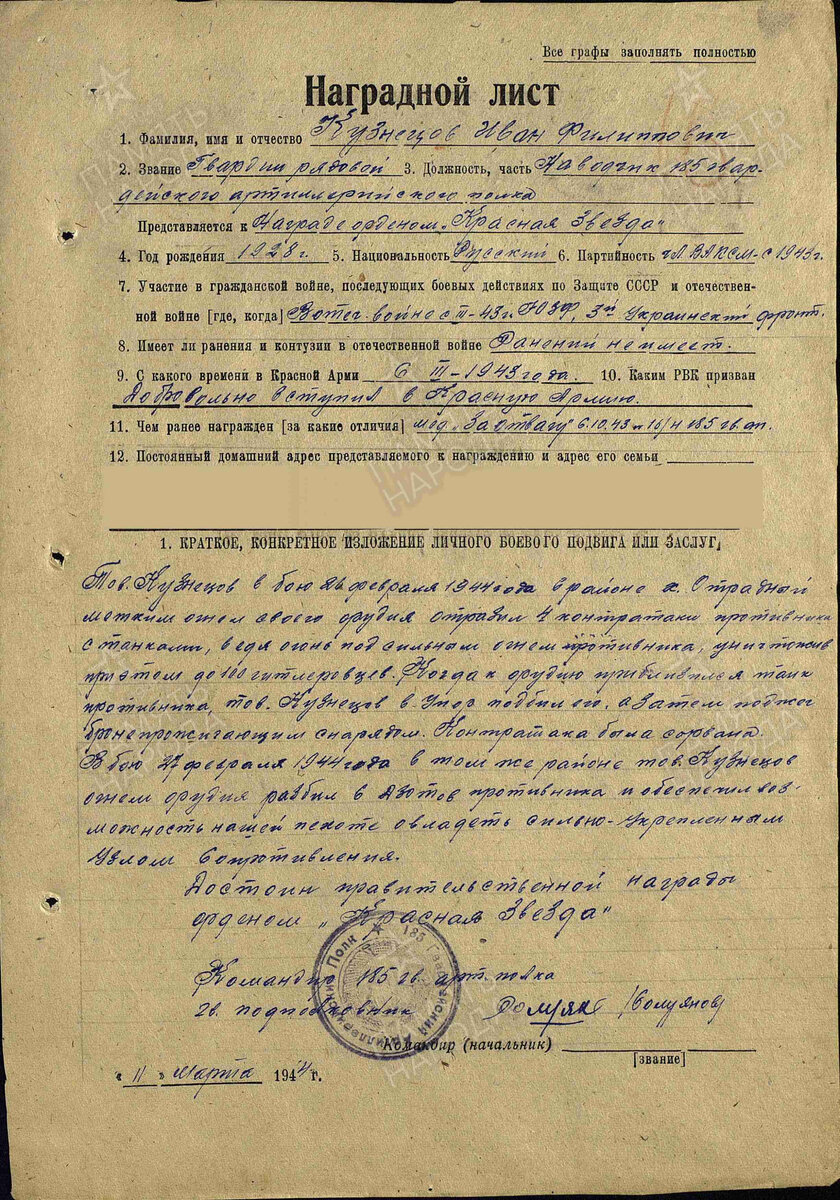 Все графы заполнять полностью
Наградной лист
1. Фамилия, имя и отчество Кузнецов Иван Филиппович
2. Звание Гвардии рядовой 3. Должность, часть Наводчик 185 гвар-
дейского артиллерийского полка
Представляется к Награде орденом „Красная Звезда"
4. Год рождения 1928 г. 5. Национальность Русский 6. Партийность чл. ВЛКСМ с 1943 г.
7. Участие в гражданской войне, последующих боевых действиях по Защите СССР и отечествен-
ной войне [где, когда] В отеч. войне с III-43 г. ЮЗФ, 3й Украинский фронт.
8. Имеет ли ранения и контузии в отечественной войне Ранений не имеет.
9. С какого времени в Красной Арми 6 III-1943 года. 10. Каким РВК призван
Добровольно вступил в Красную Армию.
11. Чем ранее награжден [за какие отличия] мед. „За отвагу" 6.10.43 185 гв. ап.
12. Постоянный домашний адрес представляемого к награждению и адрес его семьи
1. КРАТКОЕ, КОНКРЕТНОЕ ИЗЛОЖЕНИЕ ЛИЧНОГО БОЕВОГО ПОДВИГА ИЛИ ЗАСЛУГ
Тов. Кузнецов в бою 26 февраля 1944 года в районе х. Отрадный
метким огнем своего орудия отразил 4 контратаки противника
с танками, ведя огонь под сильным огнем противника, уничтожив
при этом до 100 гитлеровцев. Когда к орудию приблизился танк
противника, тов. Кузнецов в упор подбил его, а затем поджог
бронепрожигающим снарядом. Контратака была сорвана.
В бою 27 февраля 1944 года в том же районе тов. Кузнецов
огнем орудия разбил 2 дзотов противника и обеспечил воз-
можность нашей пехоте овладеть сильно-укрепленным
узлом сопротивления.
Достоин правительственной награды
орденом „Красная Звезда"
Командир 185 гв. арт. полка
гв. подполковник
185 Гвардейский Артиллерийский Полк
Командир (начальник)
[звание]
„11" марта 1944 г.